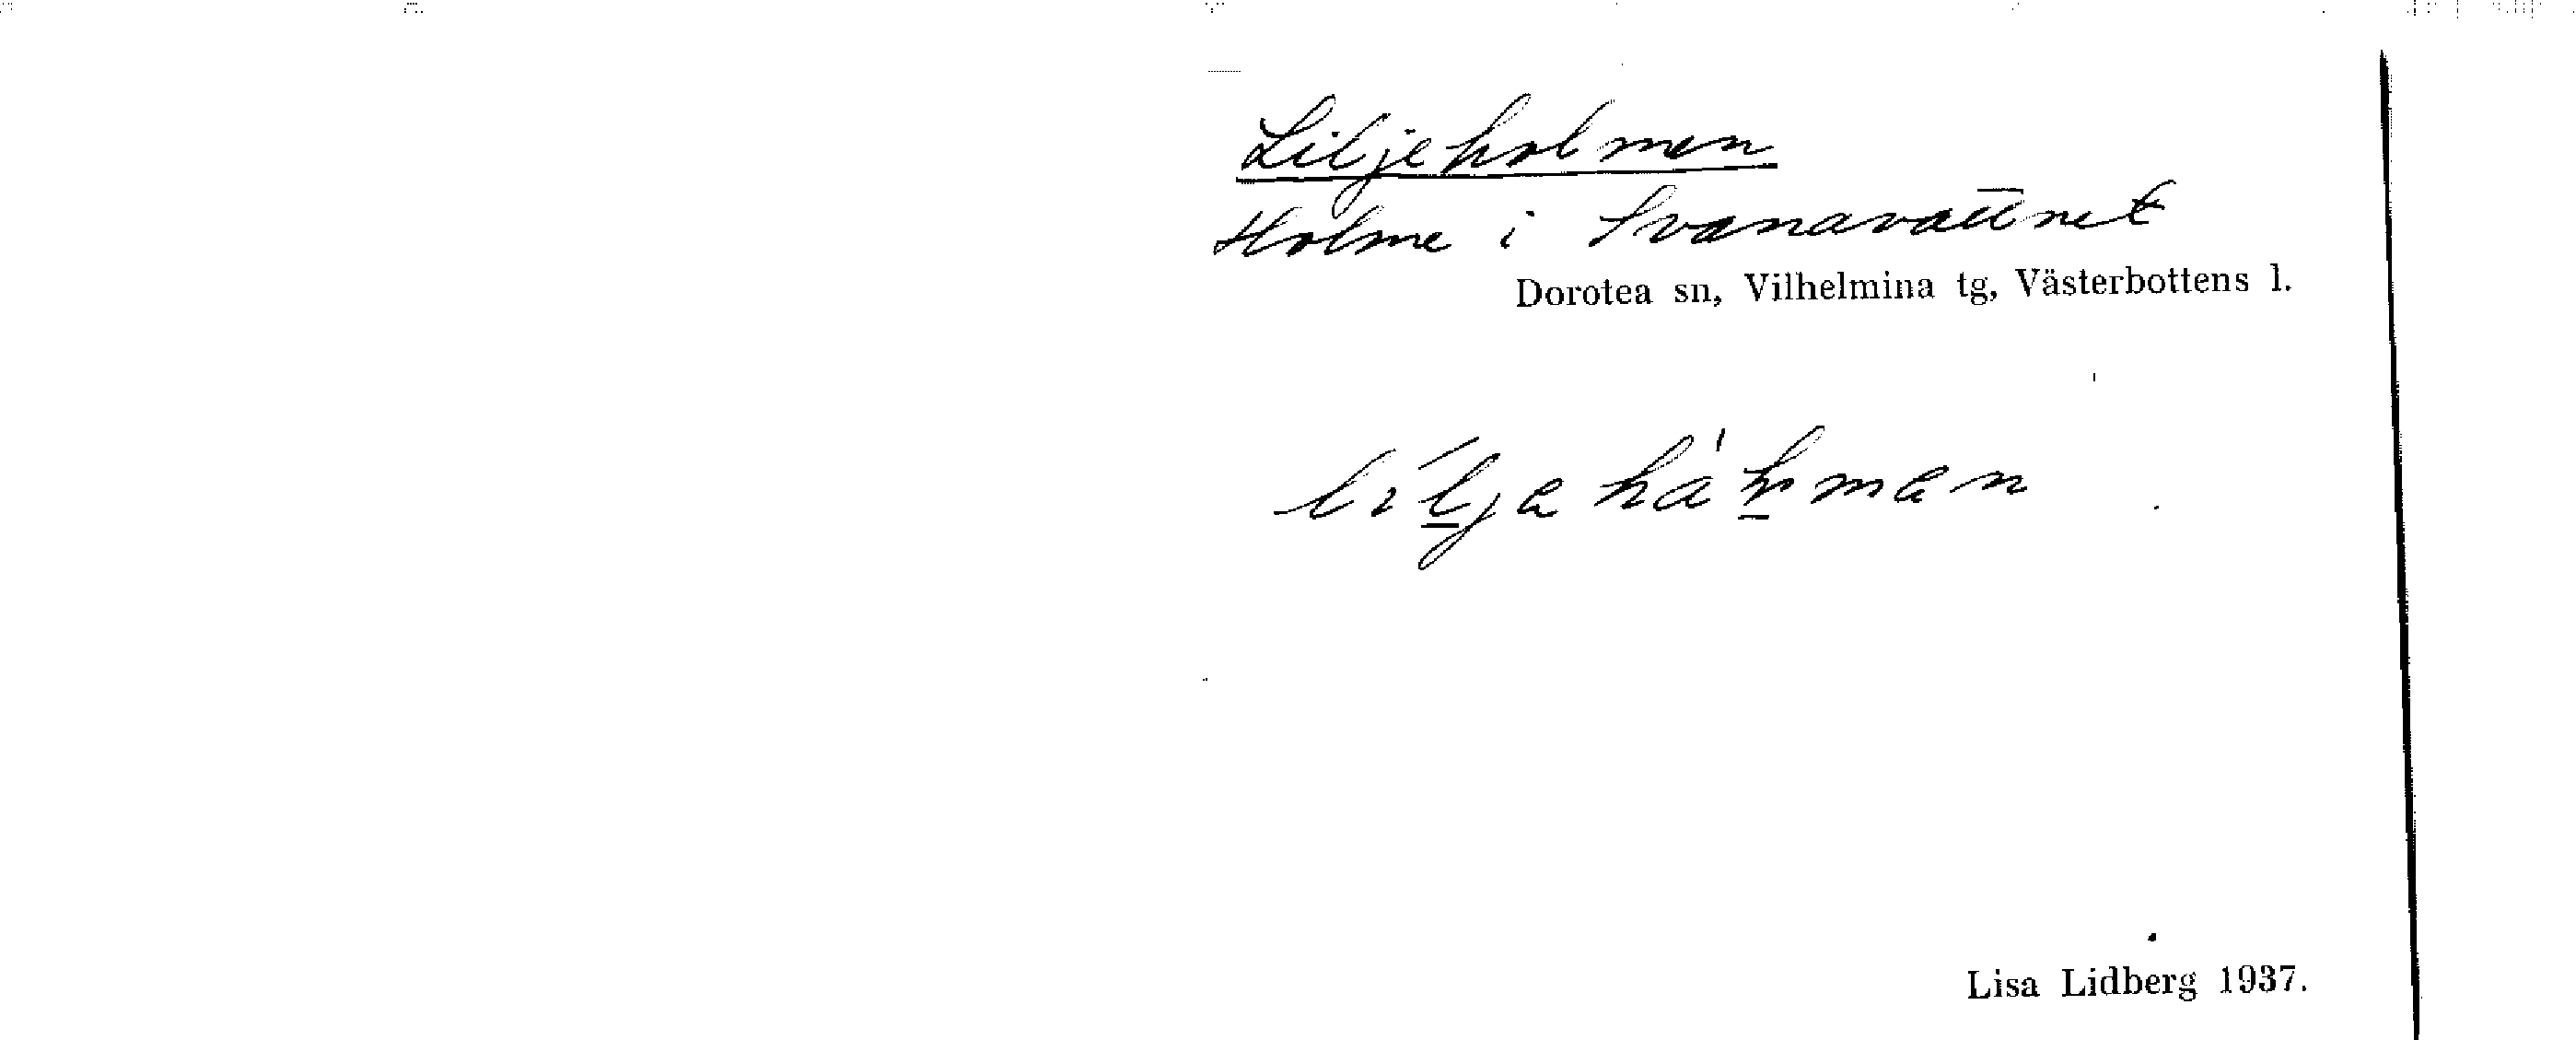 Liljeholmen
Holme i Svanavattnet
Dorotea sn, Vilhelmina tg, Västerbottens l.
Lisa Lidberg 1937.